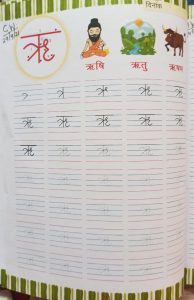 दिनांक
C.W.
ऋ
ऋषि ऋतु
ऋ ऋ ऋ ऋ
ऋ ऋ ऋ ऋ ऋ
ऋ ऋ ऋ ऋ ऋ
ऋ ऋ ऋ ऋ ऋ
ऋ ऋ ऋ ऋ ऋ
ऋ ऋ ऋ ऋ ऋ
ऋ ऋ ऋ ऋ ऋ
ऋ ऋ ऋ ऋ ऋ